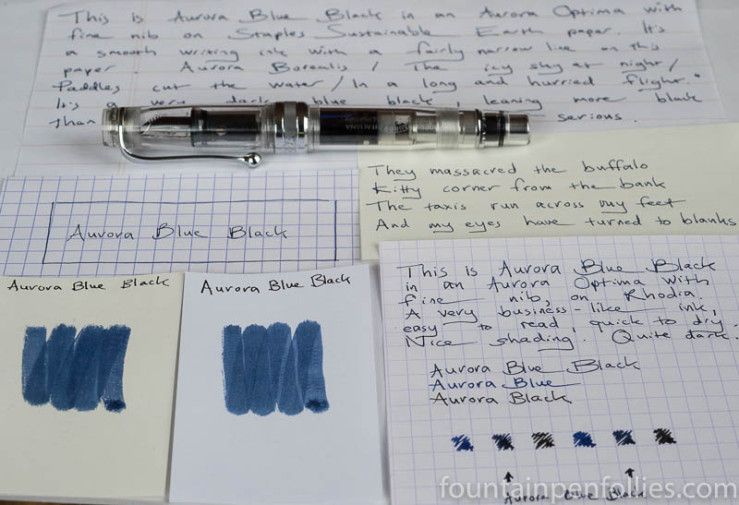 This is Aurora Blue Black in an Aurora Optima with
fine nib on Staples Sustainable Earth paper. It's
a smooth writing ink with a fairly narrow line on this
paper. Aurora Borealis / The icy sky at night /
Paddles cut the water / In a long and hurried flight."
It's a very dark blue black, leaning more black
than serious.
They massacred the buffalo
Kitty corner from the bank
The taxis run across my feet
And my eyes have turned to blanks
Aurora Blue Black
Aurora Blue Black
Aurora Blue Black
This is Aurora Blue Black
in an Aurora Optima with
fine nib, on Rhodia.
A very business-like ink,
easy to read, quick to dry.
Nice shading. Quite dark.
Aurora Blue Black
Aurora Blue
Aurora Black
Aurora Blue Black
fountainpenfollies.com